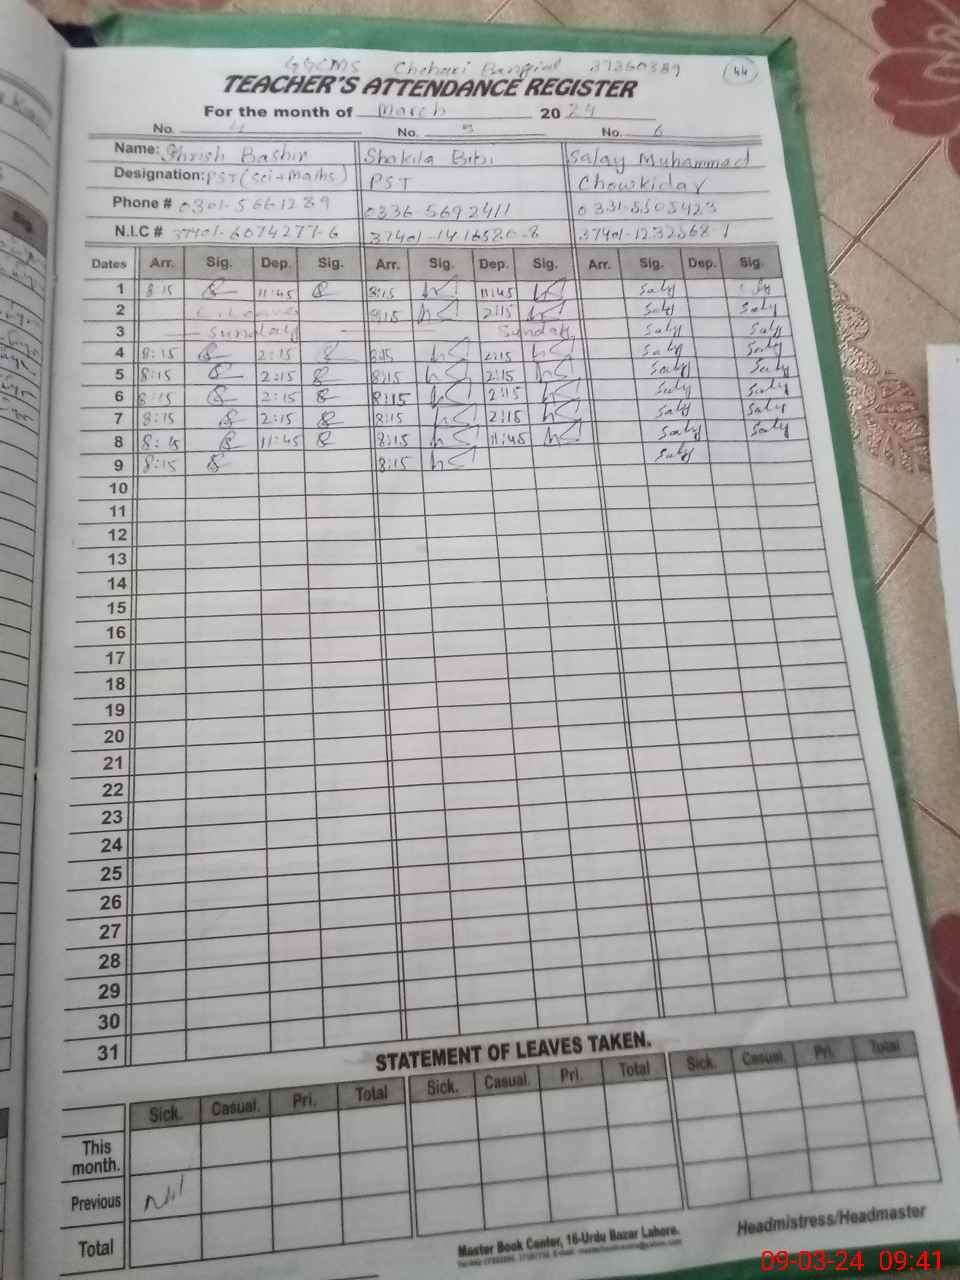 GGCMS Chehari Bangial 37360389 44
TEACHER'S ATTENDANCE REGISTER
For the month of March 2024
No. 4 No. 5 No. 6
Name: Bashir Shakila Bibi Salay Muhammad
Designation: PST (Sci+Maths) PST Chowkidar
Phone # 0301-5661289 0336 5692411
N.I.C # 37401-6074277-6
Dates Arr. Sig. Dep. Sig. Arr. Sig. Dep. Sig. Arr. Sig. Dep. Sig.
1 8:15 11:45 8:15 11:45 Saly Saly
2 C.Leave 8:15 2:15 Saly Saly
3 Sunday Sunday Saly Saly
4 8:15 2:15 8:15 2:15 Saly Saly
5 8:15 2:15 8:15 2:15 Saly Saly
6 8:15 2:15 8:15 2:15 Saly Saly
7 8:15 2:15 8:15 2:15 Saly Saly
8 8:15 11:45 8:15 11:45 Saly Saly
9 8:15 8:15 Saly
10
11
12
13
14
15
16
17
18
19
20
21
22
23
24
25
26
27
28
29
30
31
STATEMENT OF LEAVES TAKEN.
Sick. Casual. Pri. Total Sick. Casual. Pri. Total Sick. Casual. Pri. Total
This month.
Previous Nil
Total
Master Book Center, 16-Urdu Bazar Lahore.
Headmistress/Headmaster
09-03-24 09:41